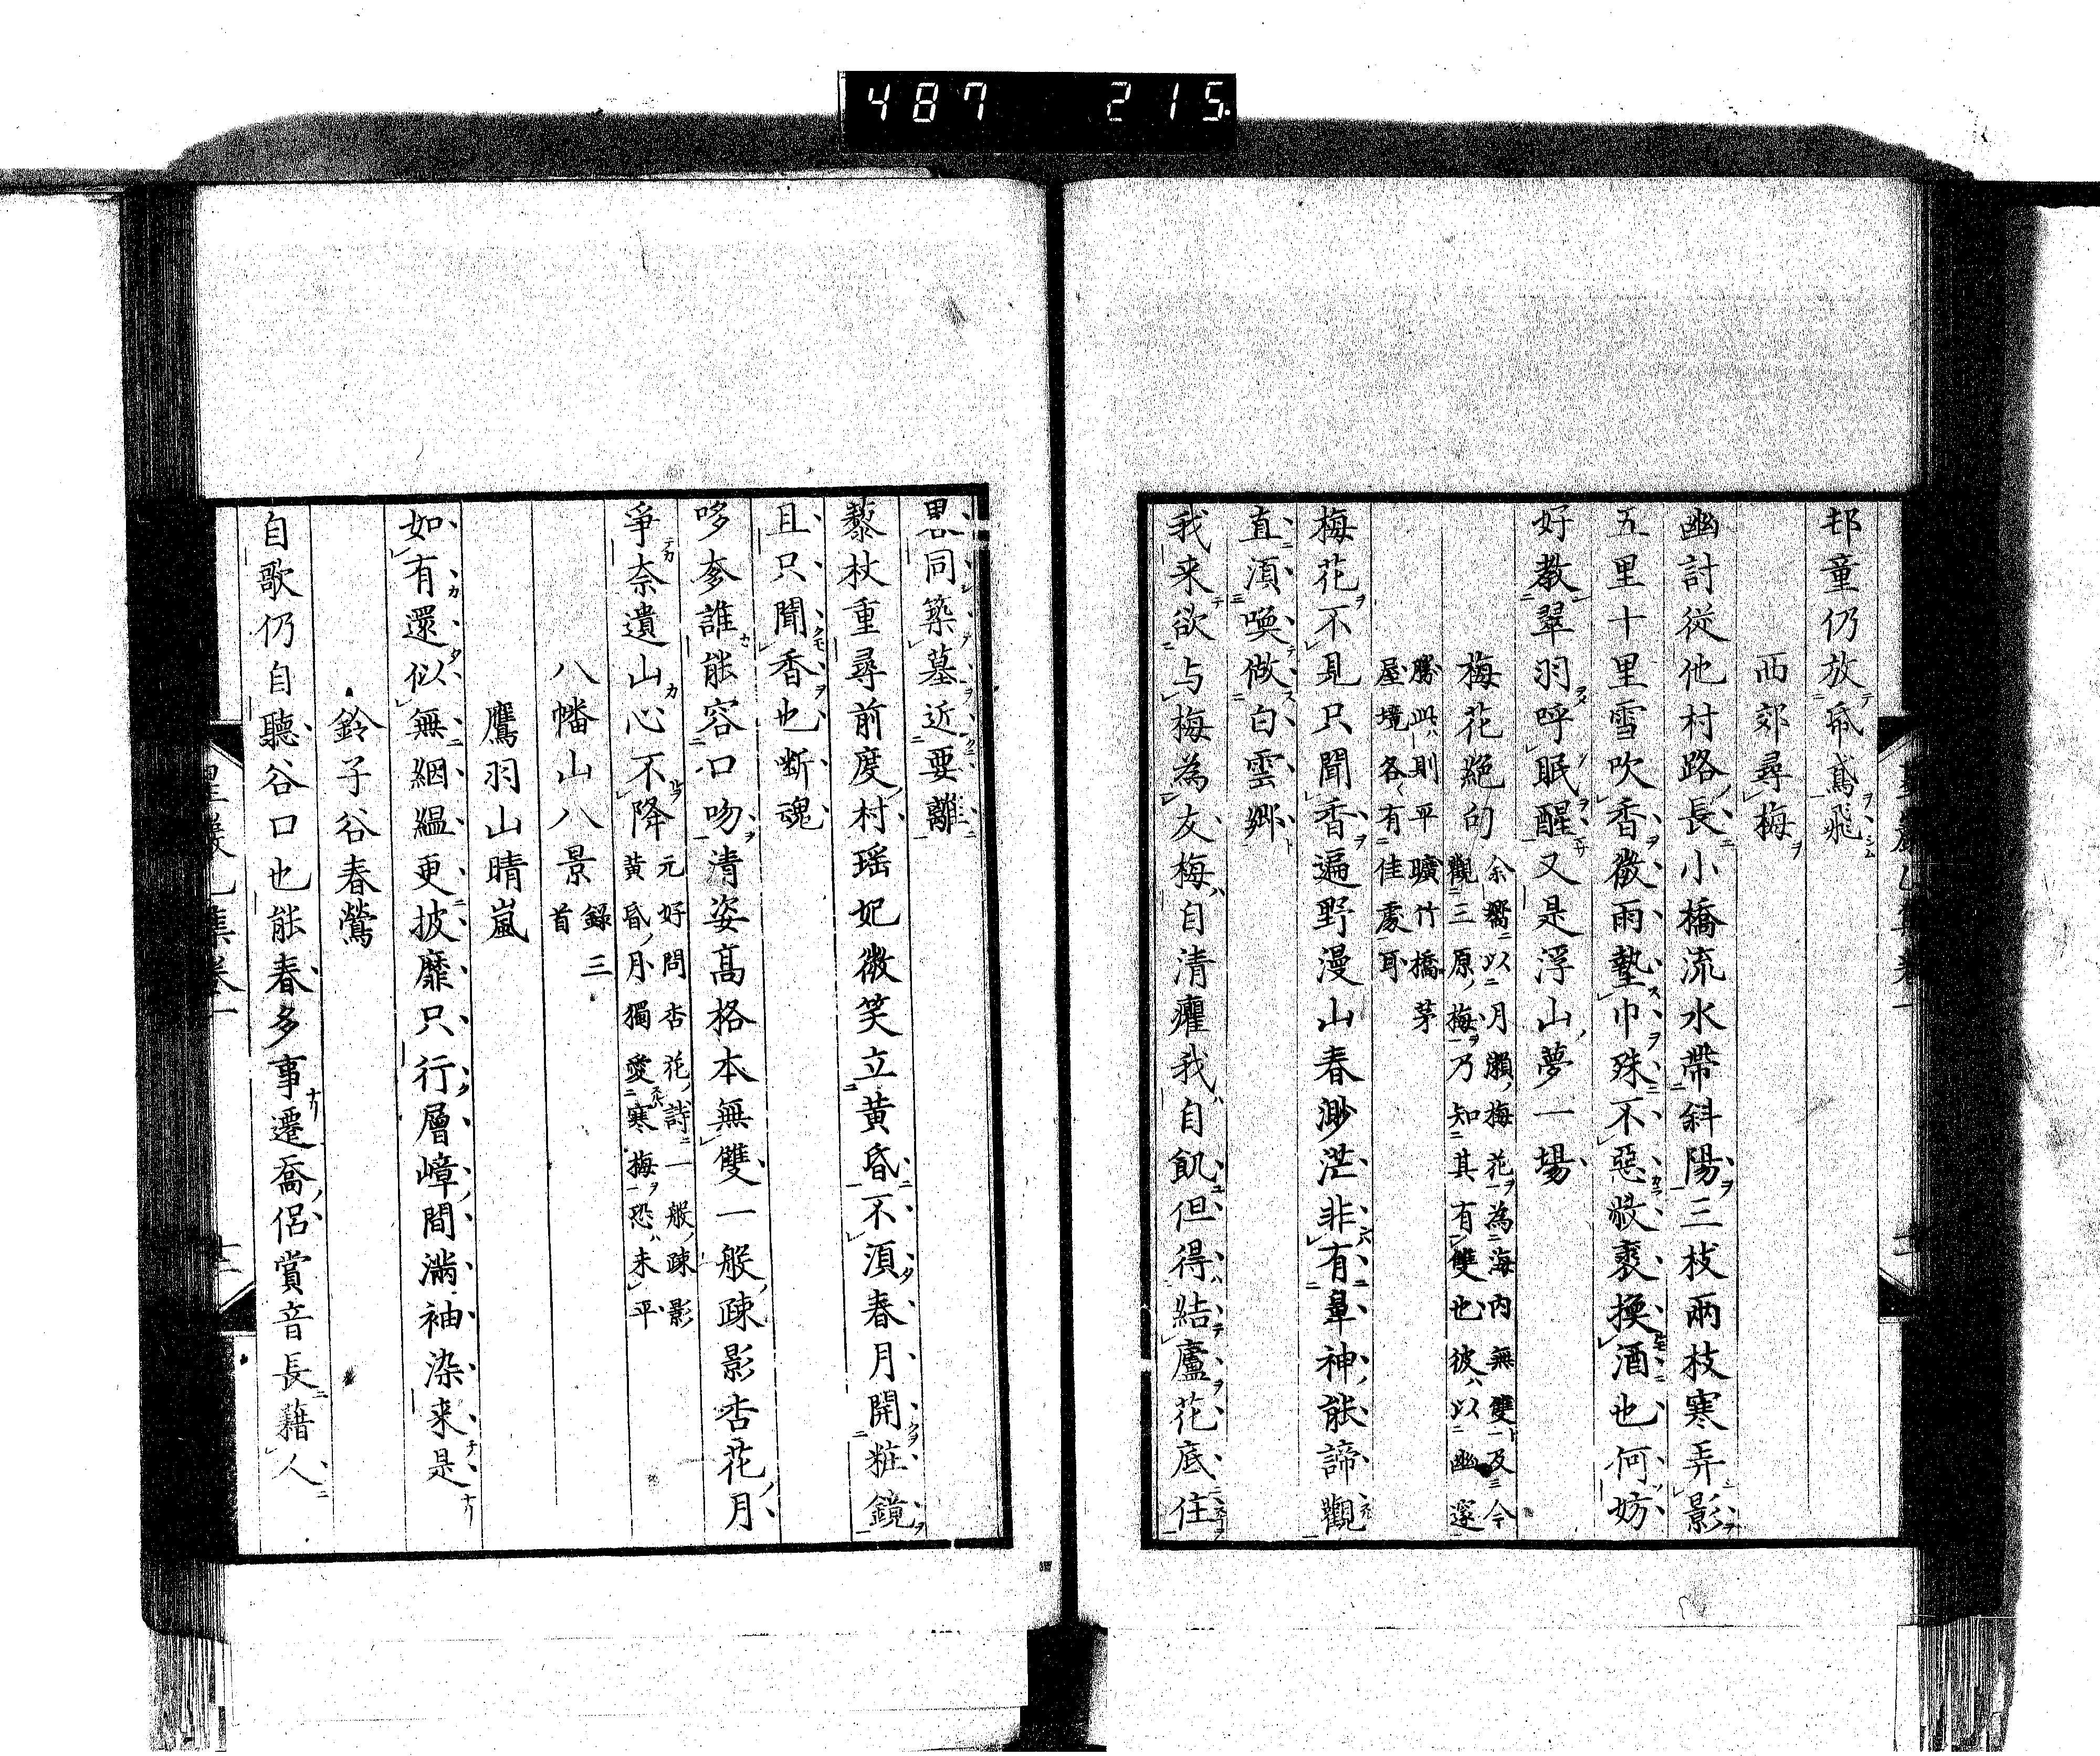 487 215
邨童仍放帋鳶飛
西郊尋梅
幽討從他村路長小橋流水帶斜陽三枝兩枝寒弄影
五里十里雪吹香微雨墊巾殊不惡敝裘換酒也何妨
好教翠羽呼眠醒又是浮山夢一場
梅花絶句
余嚮以月瀬梅花為海内無雙及今
觀三原梅乃知其有雙也彼以幽邃
勝此則平曠竹橋茅
屋境各有佳處耳
梅花不見只聞香遍野漫山春渺茫非有鼻神能諦觀
直須喚做白雲郷
我来欲与梅為友梅自清癯我自飢但得結廬花底住
思同築墓近要離
藜杖重尋前度村瑶妃微笑立黄昏不須春月開粧鏡
且只聞香也断魂
哆奓誰能容口吻清姿髙格本無雙一般疎影杏花月
爭奈遺山心不降
元好問杏花詩一般疎影
黄昏月獨愛寒梅恐未平
八幡山八景
録三
首
鷹羽山晴嵐
如有還似無絪縕更披靡只行層嶂間滿袖染来是
鈴子谷春鶯
自歌仍自聽谷口也能春多事遷喬侶賞音長藉人